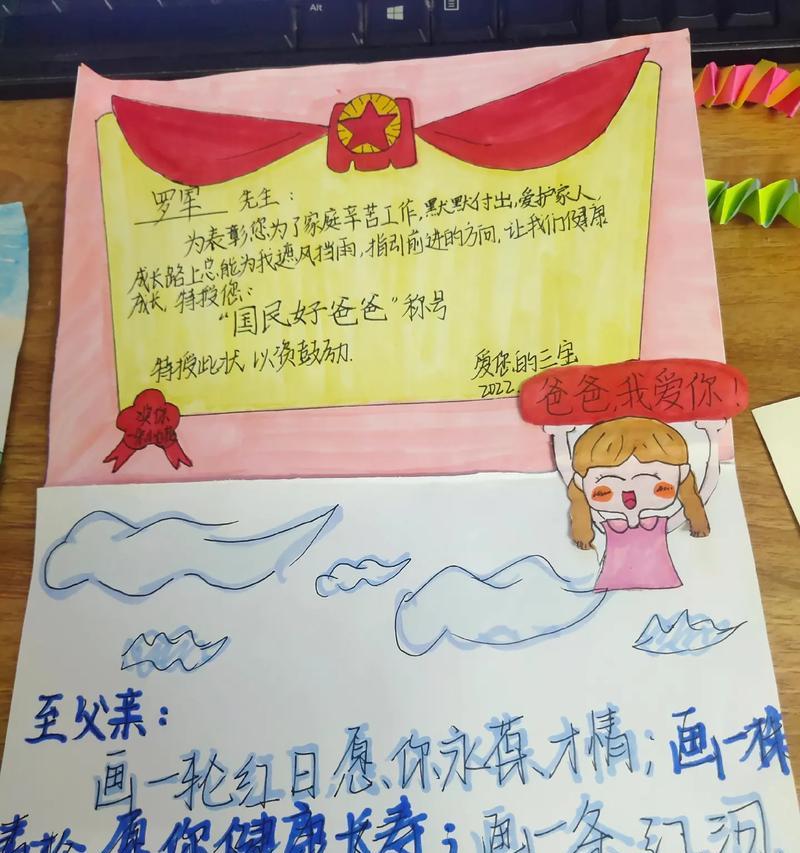 Alt
罗军 先生：
为表彰您为了家庭辛苦工作,默默付出,爱护家人,
成长路上总能为我遮风挡雨,指引前进的方向,让我们健康
成长,特授您:
“国民好爸爸”称号
特授此状 以资鼓励.
爱您的三宝
2022.
爸爸,我爱你!
至父亲:
画一轮红日愿你永葆才情;画一株
青松愿你健康长寿;画一条江河